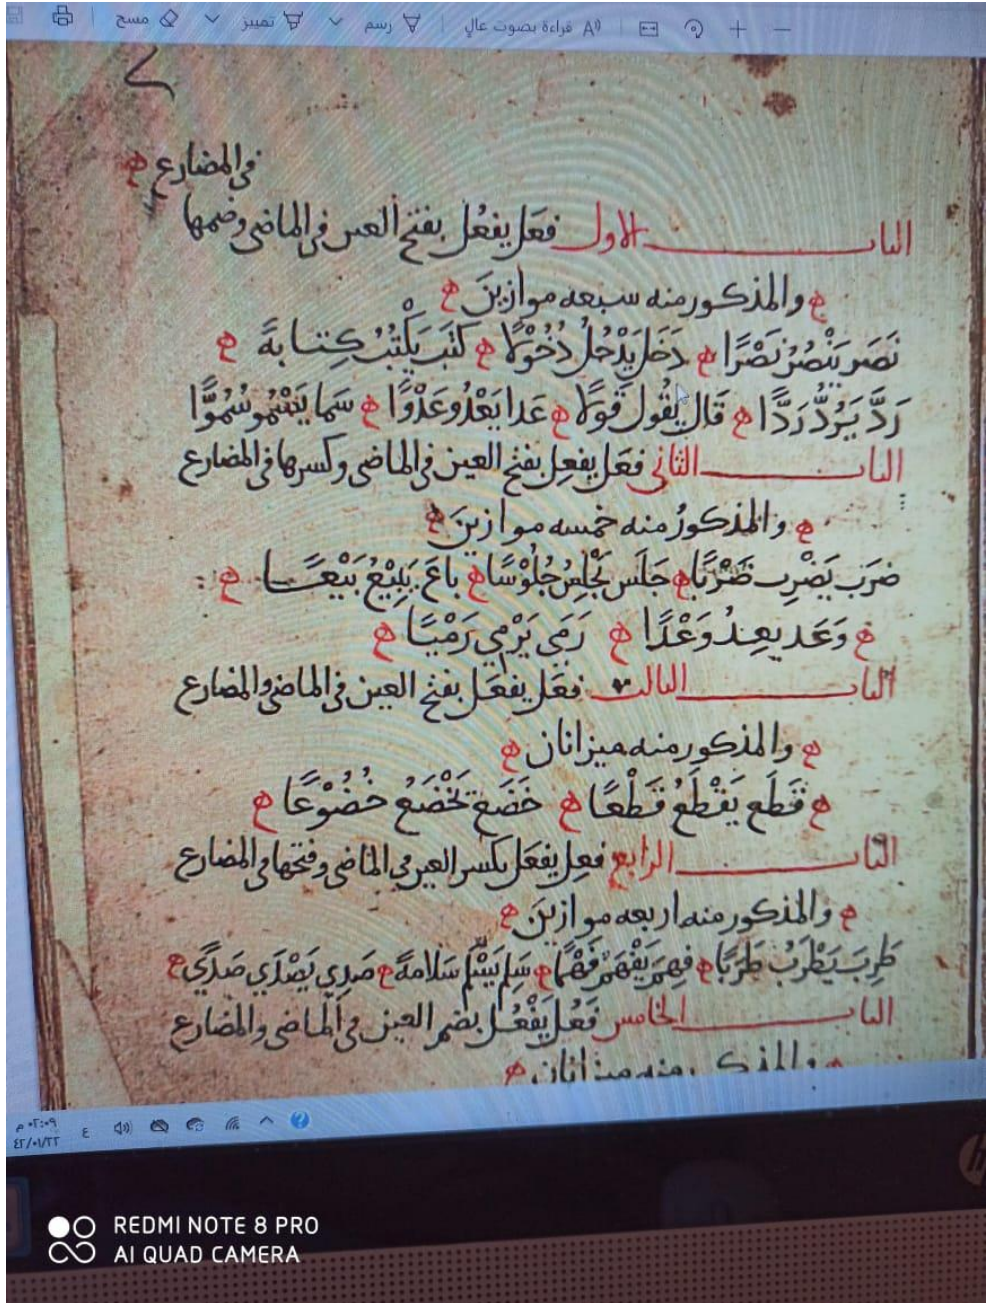 مسح
تمييز
رسم
قراءة بصوت عالٍ
في المضارع
الباب الأول فعَل يفعُل بفتح العين في الماضي وضمها
والمذكور منه سبعه موازينَ
نَصَر يَنْصُرُ نَصْرًا دَخَل يَدْخُلُ دُخُوْلًا كتَبَ يَكْتُبُ كِتابةً
رَدَّ يَرُدُّ رَدًّا قَال يَقُول قَولًا عَدا يَعْدُو عَدْوًا سَما يَسْمُو سُمُوًّا
الباب الثاني فعَل يفعِل بفتح العين في الماضي وكسرها في المضارع
والمذكورُ منه خمسه موازينَ
ضرَب يَضْرِب ضَرْبًا جَلَس يَجْلِسُ جُلُوْسًا باعَ يَبِيْعُ بَيْعًا
وَعَد يعِدُ وَعْدًا رَمَى يَرْمِي رَمْيًا
الباب الثالث فعَل يفعَل بفتح العين في الماضي والمضارع
والمذكور منه ميزانان
قَطَع يَقْطَعُ قَطْعًا خَضَعَ يَخْضَعُ خُضُوْعًا
الباب الرابع فعِل يفعَل بكسر العين في الماضي وفتحها في المضارع
والمذكور منه اربعه موازينَ
طَرِبَ يَطْرَبُ طَرَبًا فهِمَ يَفْهَمُ فَهْمًا سَلِم يَسْلَم سَلامةً صَدِي يَصْدَي صَدًي
الباب الخامس فَعُل يَفْعُل بضم العين في الماضي والمضارع
والمذكور منه ميزانان
٠٢:٠٩ م
٤٢/٠١/٢٢
ع
hp
REDMI NOTE 8 PRO
AI QUAD CAMERA